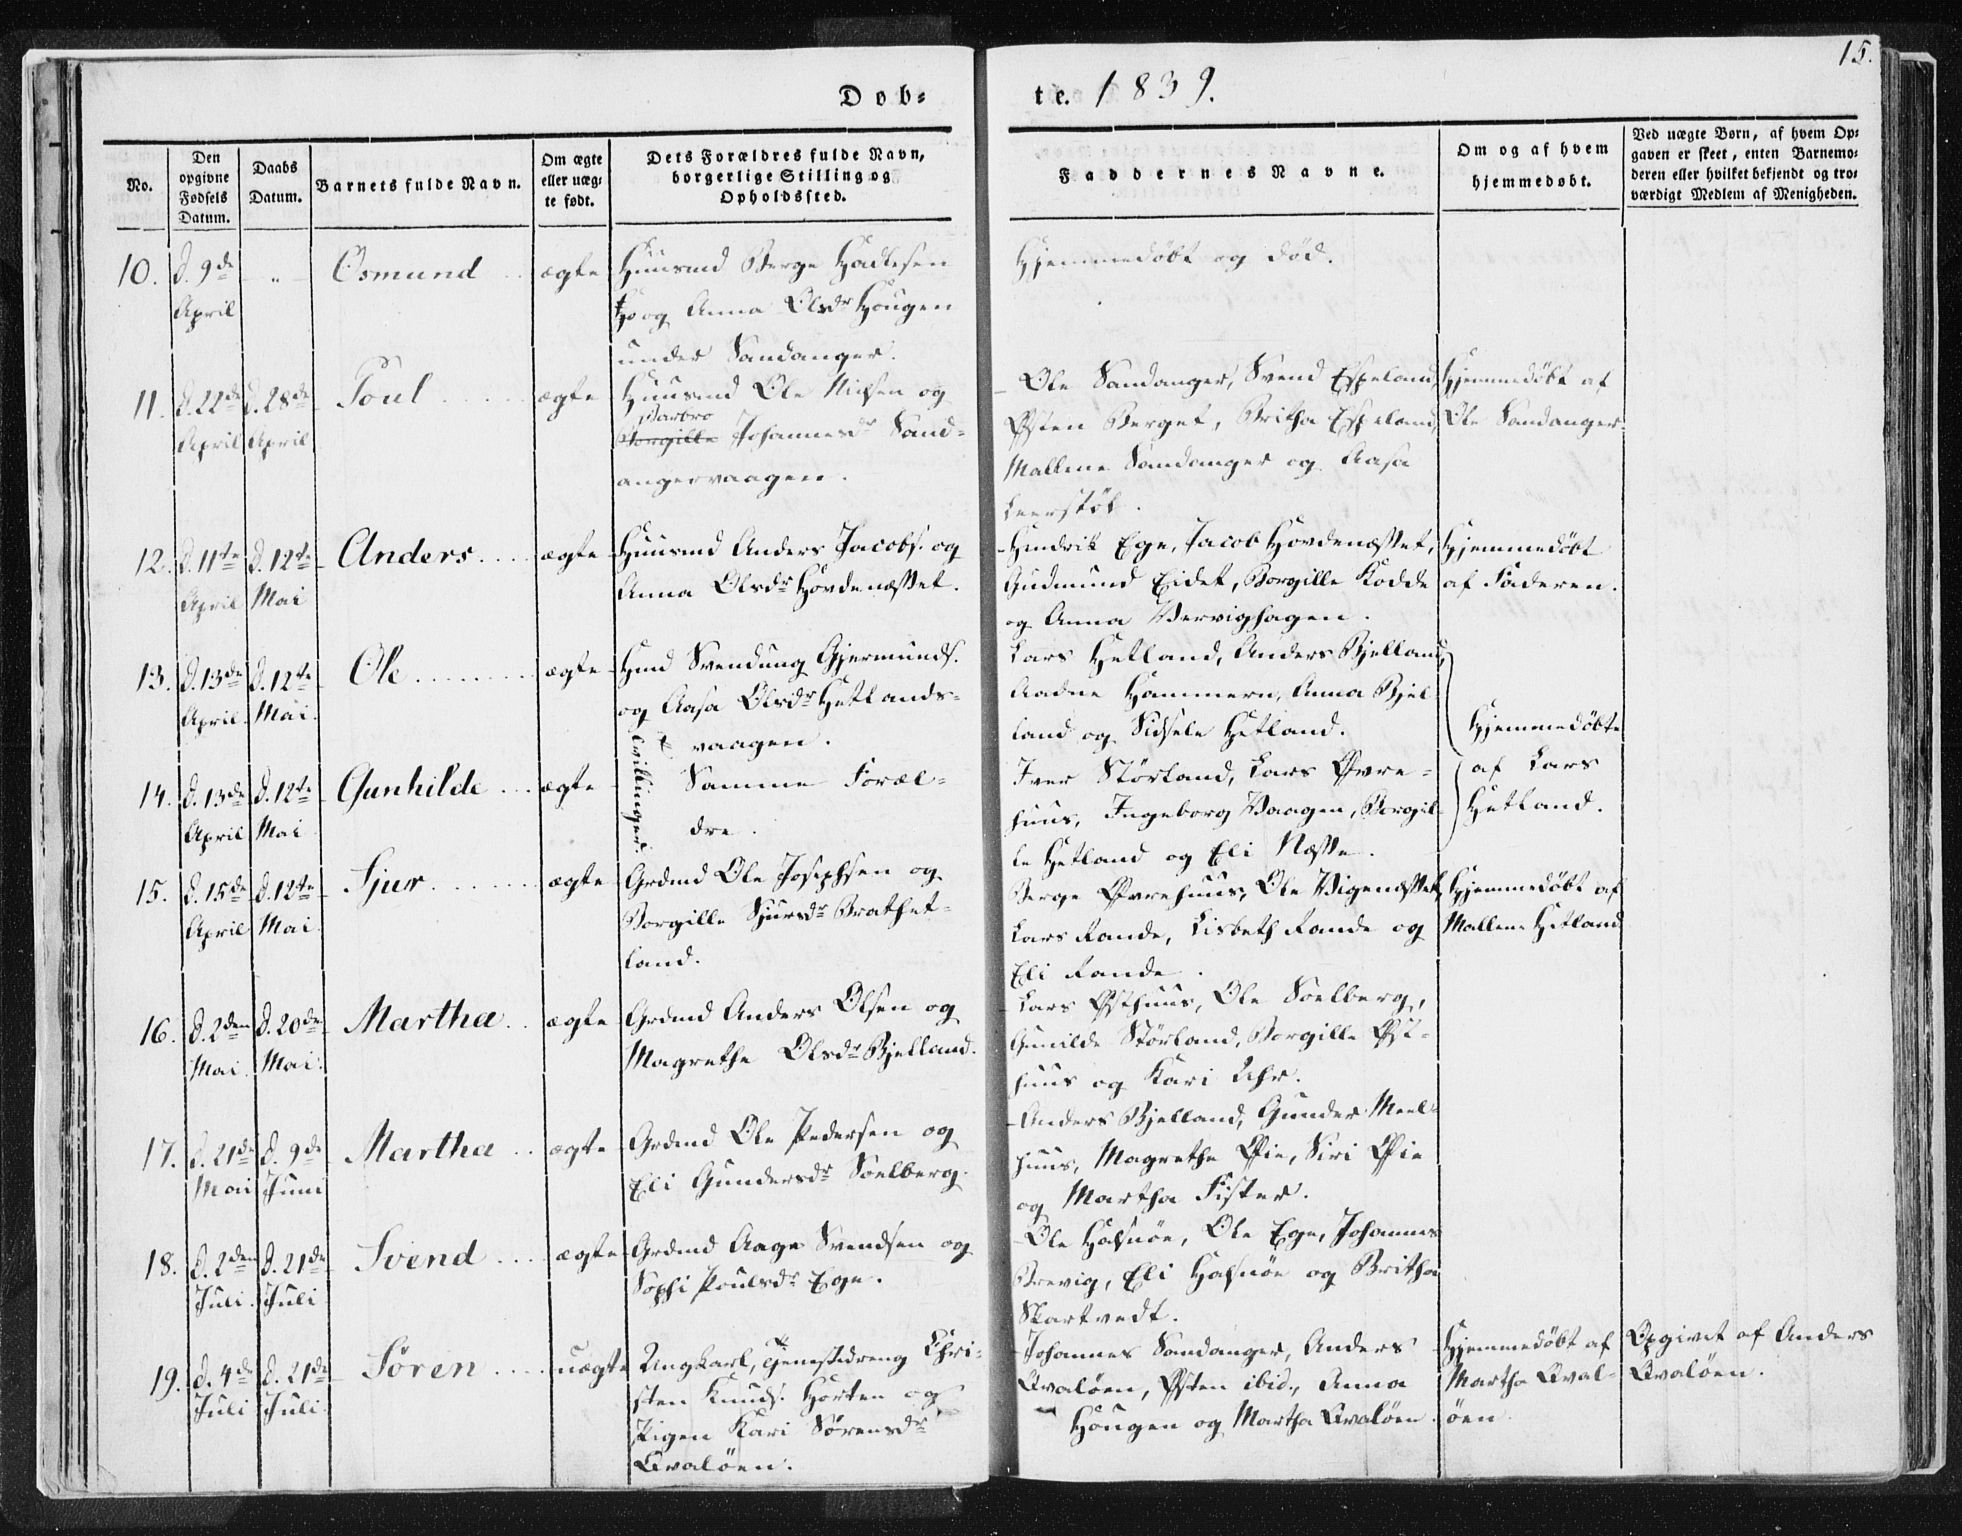 15.
Døb=
te. 1839.
No.
Den
opgivne
Fødsels
Datum.
Daabs
Datum.
Barnets fulde Navn.
Om ægte
eller uæg-
te født.
Dets Forældres fulde Navn,
borgerlige Stilling og
Opholdssted.
Faddernes Navne.
Om og af hvem
hjemmedøbt.
Ved uægte Børn, af hvem Op-
gaven er skeet, enten Barnemo-
deren eller hvilket bekjendt og tro-
værdigt Medlem af Menigheden.
10. d. 9de
April
- „ -
Osmund
ægte
Huusmd Berge Hadlesen
og Anna Olsdr Hougen
under Sandanger.
Hjemmedøbt og død.
11. d. 22de
April
d. 28de
April
Poul
ægte
Huusmd Ole Nielsen og
Barbro
Borgille Johannesdr Sand-
angervaagen.
Ole Sandanger, Svend Espeland,
Østen Berget, Britha Espeland,
Mallene Sandanger og Aasa
Leerstøl.
Hjemmedøbt af
Ole Sandanger
12. d. 11te
April
d. 12te
Mai
Anders
ægte
Huusmd Anders Jacobs. og
Anna Olsdr Hovdenæsset.
Hendrik Ege, Jacob Hovdenæsset,
Gudmund Eidet, Borgille Kodde
og Anna Vervighagen.
Hjemmedøbt
af Faderen.
13. d. 13de
April
d. 12te
Mai
Ole
ægte
Hmd Svendung Gjermunds.
og Aasa Olsdr Hetlands-
vaagen.
Tvillinger.
Lars Hetland, Anders Bjelland,
Aadne Hammeren, Anna Bjel-
land og Sidsele Hetland.
Hjemmedøbte
af Lars
Hetland.
14. d. 13de
April
d. 12te
Mai
Gunhilde
ægte
Samme Foræl-
dre.
Iver Størland, Lars Øvre-
huus, Ingeborg Vaagen, Borgil-
le Hetland og Eli Næsse.
15. d. 15de
April
d. 12te
Mai
Sjur
ægte
Grdmd Ole Josephsen og
Borgille Sjursdr Brathet-
land.
Berge Øvrehuus, Ole Vigenæsset,
Lars Rande, Lisbeth Rande og
Eli Rande.
Hjemmedøbt af
Mallene Hetland
16. d. 2den
Mai.
d. 20de
Mai.
Martha
ægte
Grdmd Anders Olsen og
Magrethe Olsdr Bjelland.
Lars Østhuus, Ole Soelberg,
Gunilde Størland, Borgille Øst-
huus og Kari Lehr.
17. d. 21de
Mai
d. 9de
Juni
Martha
ægte
Grdmd Ole Pedersen og
Eli Gundersdr Soelberg.
Anders Bjelland, Gunder Meel-
huus, Magrethe Øie, Siri Øie
og Martha Fister.
18. d. 2den
Juli.
d. 21de
Juli
Svend
ægte
Grdmd Aage Svendsen og
Sophi Poulsdr Ege.
Ole Halsnøe, Ole Ege, Johannes
Brevig, Eli Halsnøe og Britha
Skartvedt.
19. d. 4de
Juli
d. 21de
Juli.
Søren
uægte
Ungkarl, Tjenestedreng Chri-
sten Knuds. Horten og
Pigen Kari Sørensdr
Qvaløen.
Johannes Sandanger, Anders
Qvaløen, Østen ibid., Anna
Hougen og Martha Qvaløen.
Hjemmedøbt af
Martha Qval-
øen
Opgivet af Anders
Qvaløen.